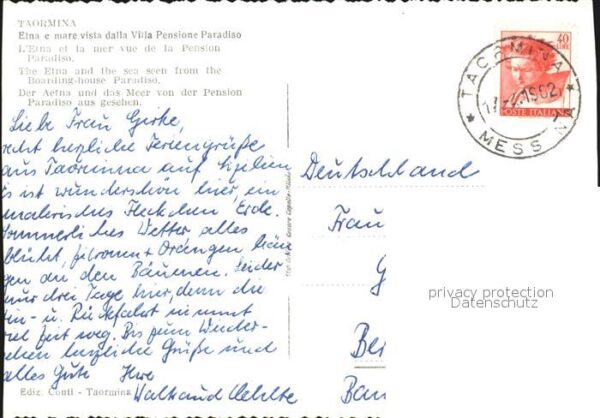 TAORMINA
Etna e mare vista dalla Villa Pensione Paradiso
L'Etna et la mer vue de la Pension
Paradiso.
The Etna and the sea seen from the
Boarding-house Paradiso.
Der Aetna und das Meer von der Pension
Paradiso aus gesehen.
40
LIRE
POSTE ITALIANE
TAORMINA
1962
MESSINA
Liebe Frau Girke,
recht herzliche Feriengrüße
aus Taormina auf Sizilien
Es ist wunderschön hier, ein
malerisches Fleckchen Erde.
Sommerliches Wetter, alles
blüht, Zitronen + Orangen hän
gen an den Bäumen. Leider
nur drei Tage hier, denn die
Hin- u. Rückfahrt nimmt
viel Zeit weg. Bis zum Wieder-
sehen herzliche Grüße und
alles Gute Ihre
Waltraud
Deutschland
Frau
G
Ber
privacy protection
Datenschutz
Ediz. Conti - Taormina